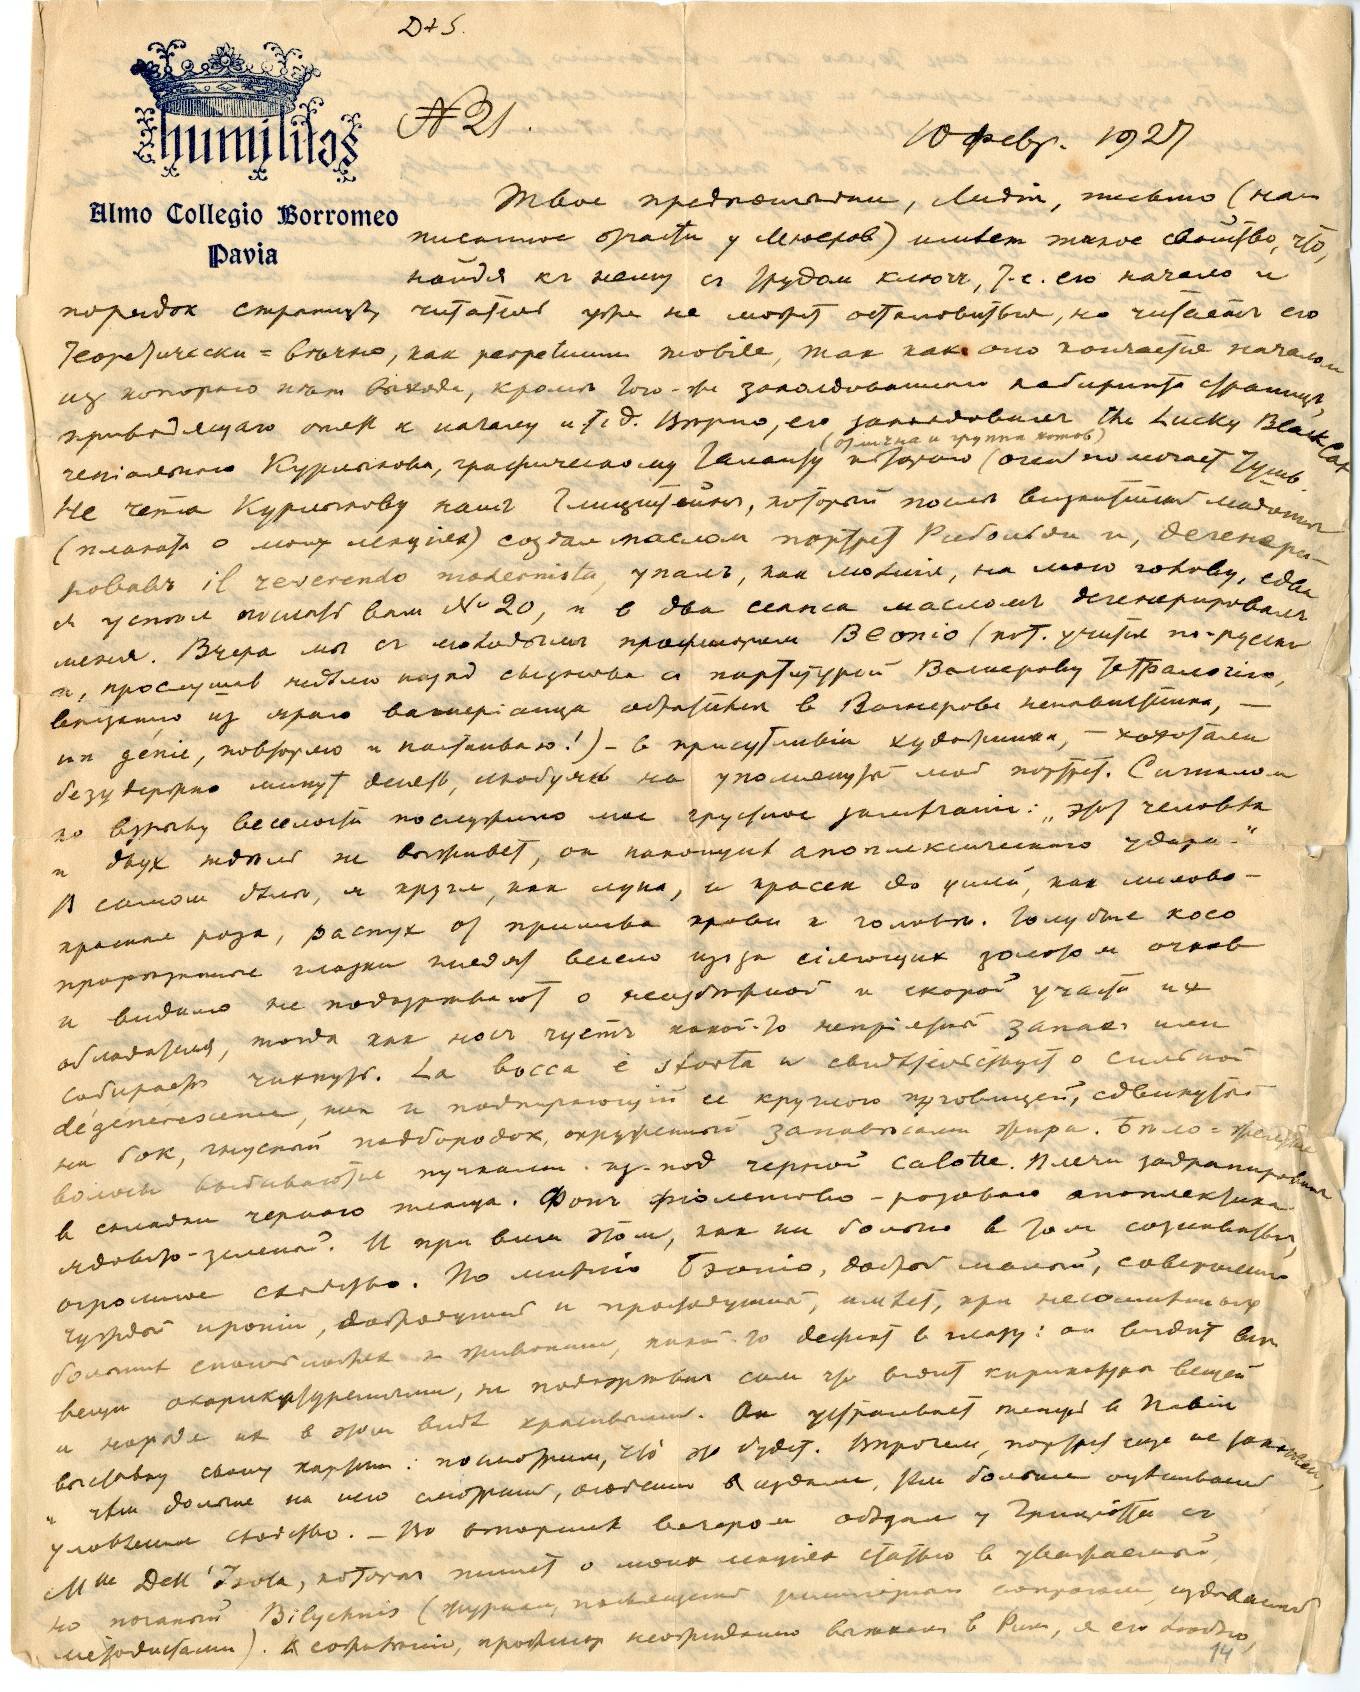 D+S.
humilitas
Almo Collegio Borromeo
Pavia
№ 21.
10 февр. 1927
Твое предпоследнее, Лидія, письмо (на-
писанное отчасти у Мюеров) имеет такое свойство, что,
найдя къ нему съ трудом ключъ, т.е. его начало и
порядок страницъ, читатель уже не может остановиться, но читаетъ его
теоретически = вѣчно, как perpetuum mobile, так как оно кончается началом
из которого нѣт выхода, кромѣ того-же заколдованнаго лабиринта страницъ,
приводящаго опять к началу и т.д. Вѣрно, его заколдовалъ the Lucky Black Cat
(отлична и группа котов)
геніальнаго Курлыкова, графическому таланту котораго (очень помогает тушь.
Не чета Курлыкову наш, который послѣ
(плаката о моих лекціях) создал маслом портрет Рибольди и, дегенери-
ровавъ il reverendo modernista, упалъ, как молнія, на мою голову, едва
я успѣл послать вам № 20, и в два сеанса маслом дегенерировалъ
меня. Вчера мы съ молодым профессором Beonio (кот. учится по-русски
и, прослушав недѣлю назад съ партитурой Вагнерову тетралогію,
внезапно из яраго вагнеріанца обратился в Вагнерова ненавистника, —
un génie, повторяю и настаиваю!) – в присутствіи художника, – хохотали
безудержно минут десять, любуясь на упомянутый мой портрет. Сигналом
ко взрыву веселости послужило мое грустное замѣчаніе: „этот человѣк
и двух недѣль не выживет, он наканунѣ апоплексическаго удара."
В самом дѣлѣ, я кругл, как луна, и красен до ушей, как
красная роза, распух от прилива крови к головѣ. Голубые косо
прорѣзанные глазки глядят весело из за сіяющих золотом очков
и видимо не подозрѣвают о неизбѣжной и скорой участи их
обладателя, тогда как носъ чуетъ какой-то непріятный запах или
собирается чихнуть. La bocca è storta и свидѣтельствует о сильной
dégénérescence, как и подпирающій ее круглою пуговицей, сдвинутый
на бок, гнусный подбородок, окруженный занавѣсами жира. Бѣло =
волосы выбиваются пучками из-под черной calotte. Плечи задрапированы
в складки черного плаща. Фонъ фіолетово – розоваго апоплексика
ядовито-зеленый. И при всем этом, как ни больно в том сознаваться,
огромное сходство. По мнѣнію Беоніо, добрый малый, совершенно
чуждый ироніи, добродушный и простодушный, имѣет, при несомнѣнных
больших способностях к живописи, какой-то дефект в глазу: он видит всѣ
вещи окарикатуренными, не подозрѣвая сам что видит карикатуры вещей
и находя их в этом видѣ красивыми. Он устраивает теперь в Павіи
выставку своих картин: посмотрим, что это будет. Впрочем, портрет еще не закончен,
и чѣм дольше на него смотришь, особенно издали, тѣм больше оцѣниваешь
уловленное сходство. – Во вторник вечером обѣдал у съ
Mme Dell'Isola, которая пишет о моих лекціях статью в уважаемый,
но поганый Bilychnis (журнал, посвященный религіозным вопросам, издаваемый
методистами). К сожалѣнію, профессор неожиданно вызван в Рим, я его
14